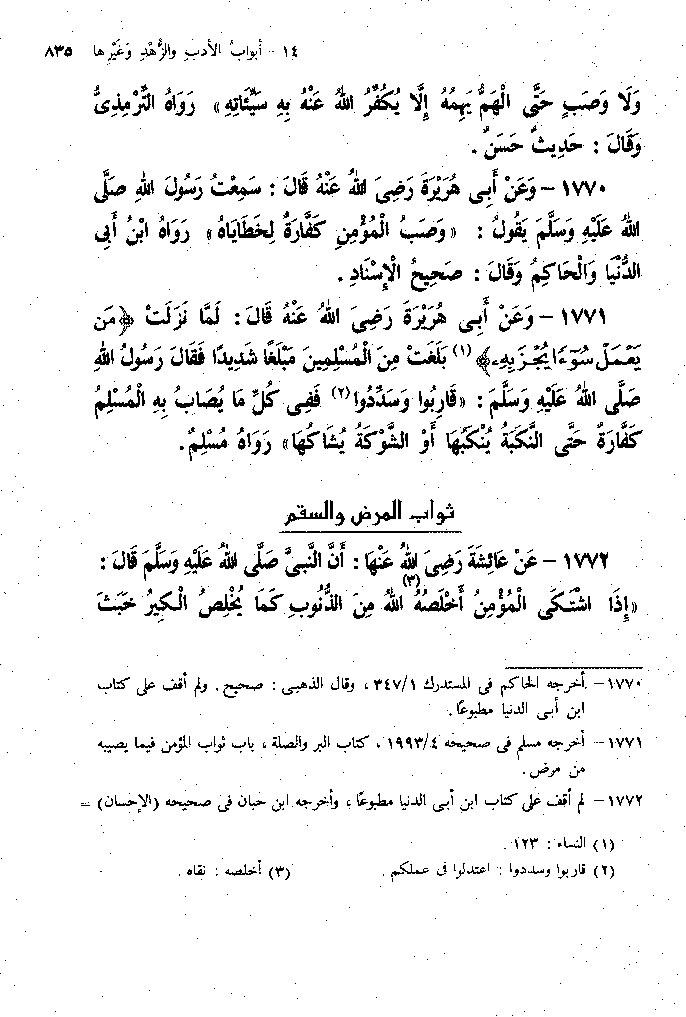 ١٤ - أبوابُ الأدبِ والزُّهْدِ وَغَيْرِها ٨٣٥
وَلَا وَصَبٍ حَتَّى الْهَمُّ يَهِمُهُ إِلَّا يُكَفِّرُ اللهُ عَنْهُ بِهِ سَيِّئَاتِهِ» رَوَاهُ التِّرْمِذِىُّ
وَقَالَ : حَدِيثٌ حَسَنٌ .
١٧٧٠ - وَعَنْ أَبِى هُرَيْرَةَ رَضِىَ اللهُ عَنْهُ قَالَ : سَمِعْتُ رَسُولَ اللهِ صَلَّى
اللهُ عَلَيْهِ وَسَلَّمَ يَقُولُ : «وَصَبُ الْمُؤْمِنِ كَفَّارَةٌ لِخَطَايَاهُ» رَوَاهُ ابْنُ أَبِى
الدُّنْيَا وَالْحَاكِمُ وَقَالَ : صَحِيحُ الْإِسْنَادِ .
١٧٧١ - وَعَنْ أَبِى هُرَيْرَةَ رَضِىَ اللهُ عَنْهُ قَالَ : لَمَّا نَزَلَتْ ﴿مَن
يَعْمَلْ سُوٓءًا يُجْزَ بِهِۦ﴾ (١) بَلَغَتْ مِنَ الْمُسْلِمِينَ مَبْلَغًا شَدِيدًا فَقَالَ رَسُولُ اللهِ
صَلَّى اللهُ عَلَيْهِ وَسَلَّمَ : «قَارِبُوا وَسَدِّدُوا (٢) فَفِى كُلِّ مَا يُصَابُ بِهِ الْمُسْلِمُ
كَفَّارَةٌ حَتَّى النَّكْبَةُ يُنْكَبُهَا أَوْ الشَّوْكَةُ يُشَاكُهَا» رَوَاهُ مُسْلِمٌ .
ثواب المرض والسقم
١٧٧٢ - عَنْ عَائِشَةَ رَضِىَ اللهُ عَنْهَا : أَنَّ النَّبِىَّ صَلَّى اللهُ عَلَيْهِ وَسَلَّمَ قَالَ :
«إِذَا اشْتَكَى الْمُؤْمِنُ أَخْلَصَهُ (٣) اللهُ مِنَ الذُّنُوبِ كَمَا يُخْلِصُ الْكِيرُ خَبَثَ
١٧٧٠ - أخرجه الحاكم فى المستدرك ٣٤٧/١ ، وقال الذهبى : صحيح . ولم أقف على كتاب
ابن أبى الدنيا مطبوعًا .
١٧٧١ - أخرجه مسلم فى صحيحه ١٩٩٣/٤ ، كتاب البر والصلة ، باب ثواب المؤمن فيما يصيبه
من مرض .
١٧٧٢ - لم أقف على كتاب ابن أبى الدنيا مطبوعًا ، وأخرجه ابن حبان فى صحيحه (الإحسان) =
(١) النساء : ١٢٣ .
(٢) قاربوا وسددوا : اعتدلوا فى عملكم . (٣) أخلصه : نقاه .